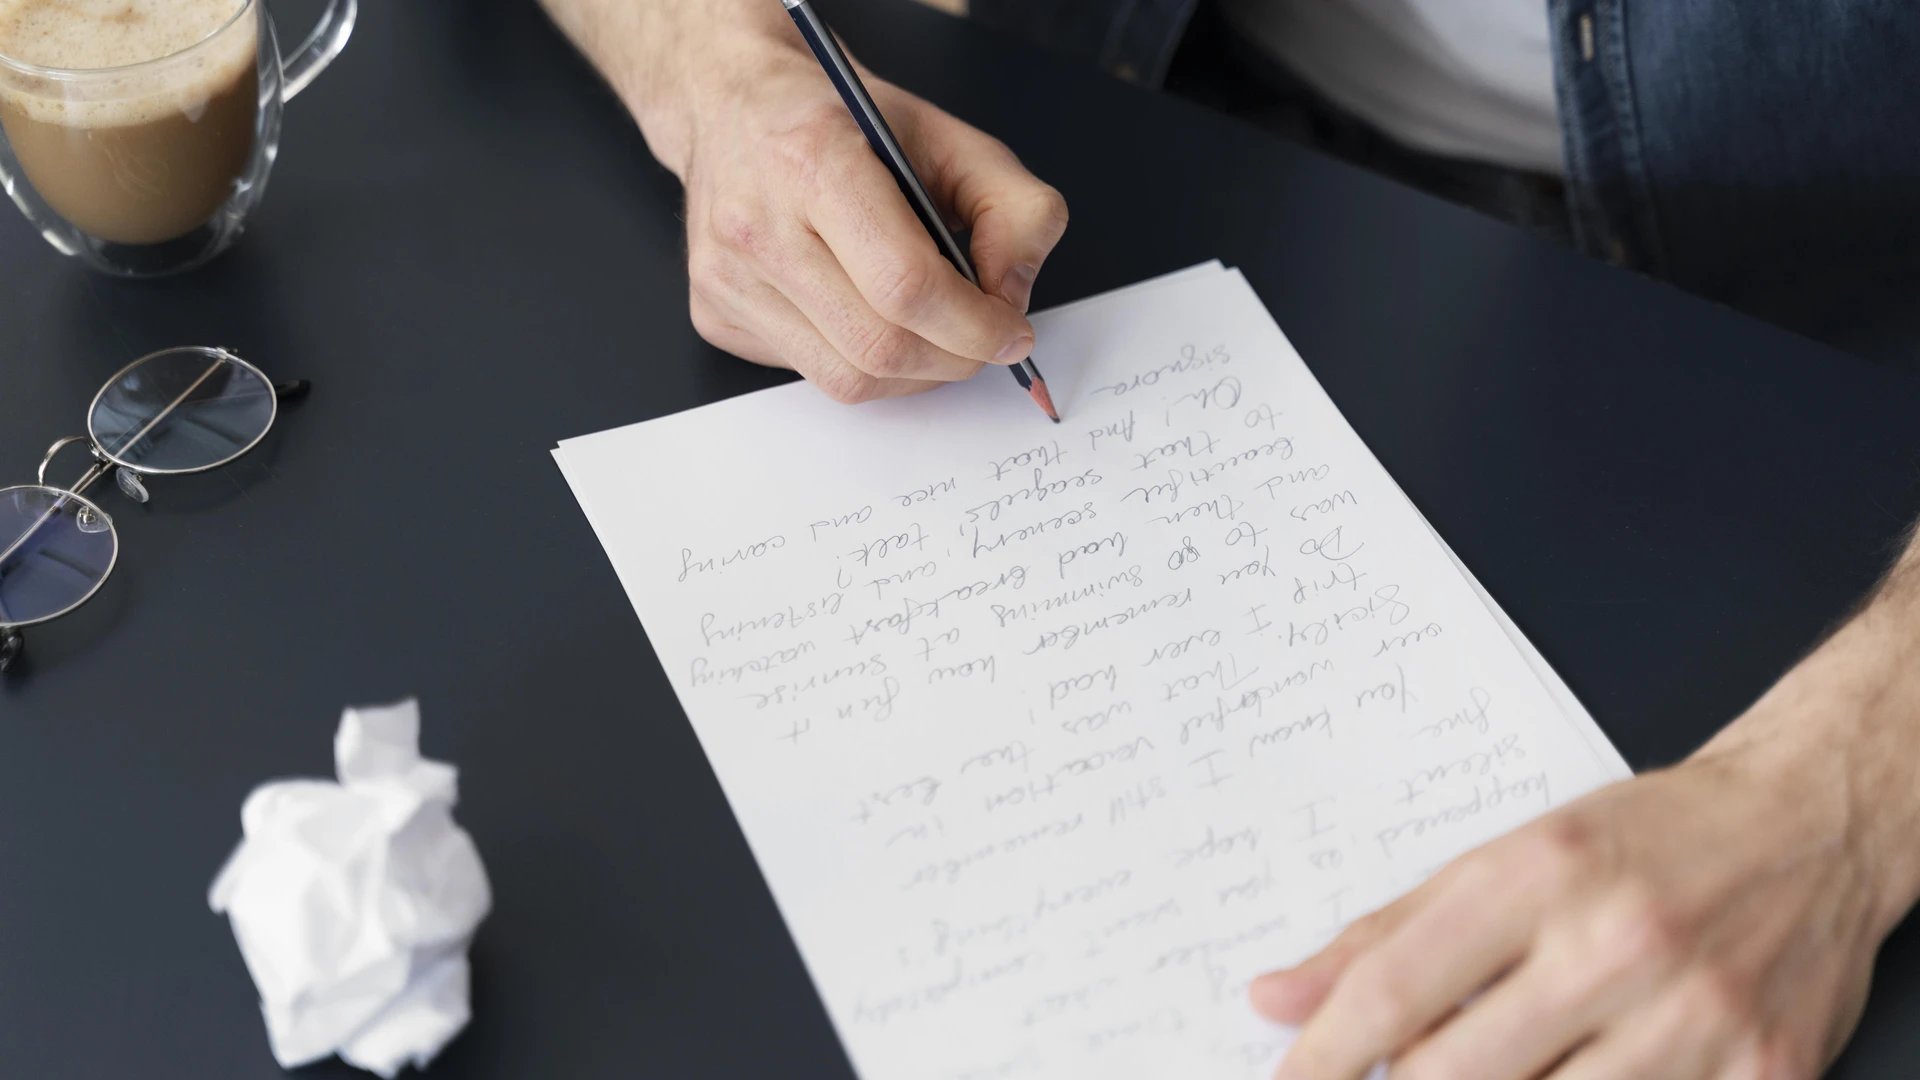 time
I wonder what
happened, as you went completely
silent. I hope everything's
fine.
You know I still remember
our wonderful vacation in
Sicily. That was the best
trip I ever had!
Do you remember how fun it
was to go swimming at sunrise
and then had breakfast watching
beautiful scenery, and listening
to that seaguls' talk?
Oh! And that nice and caring
signora